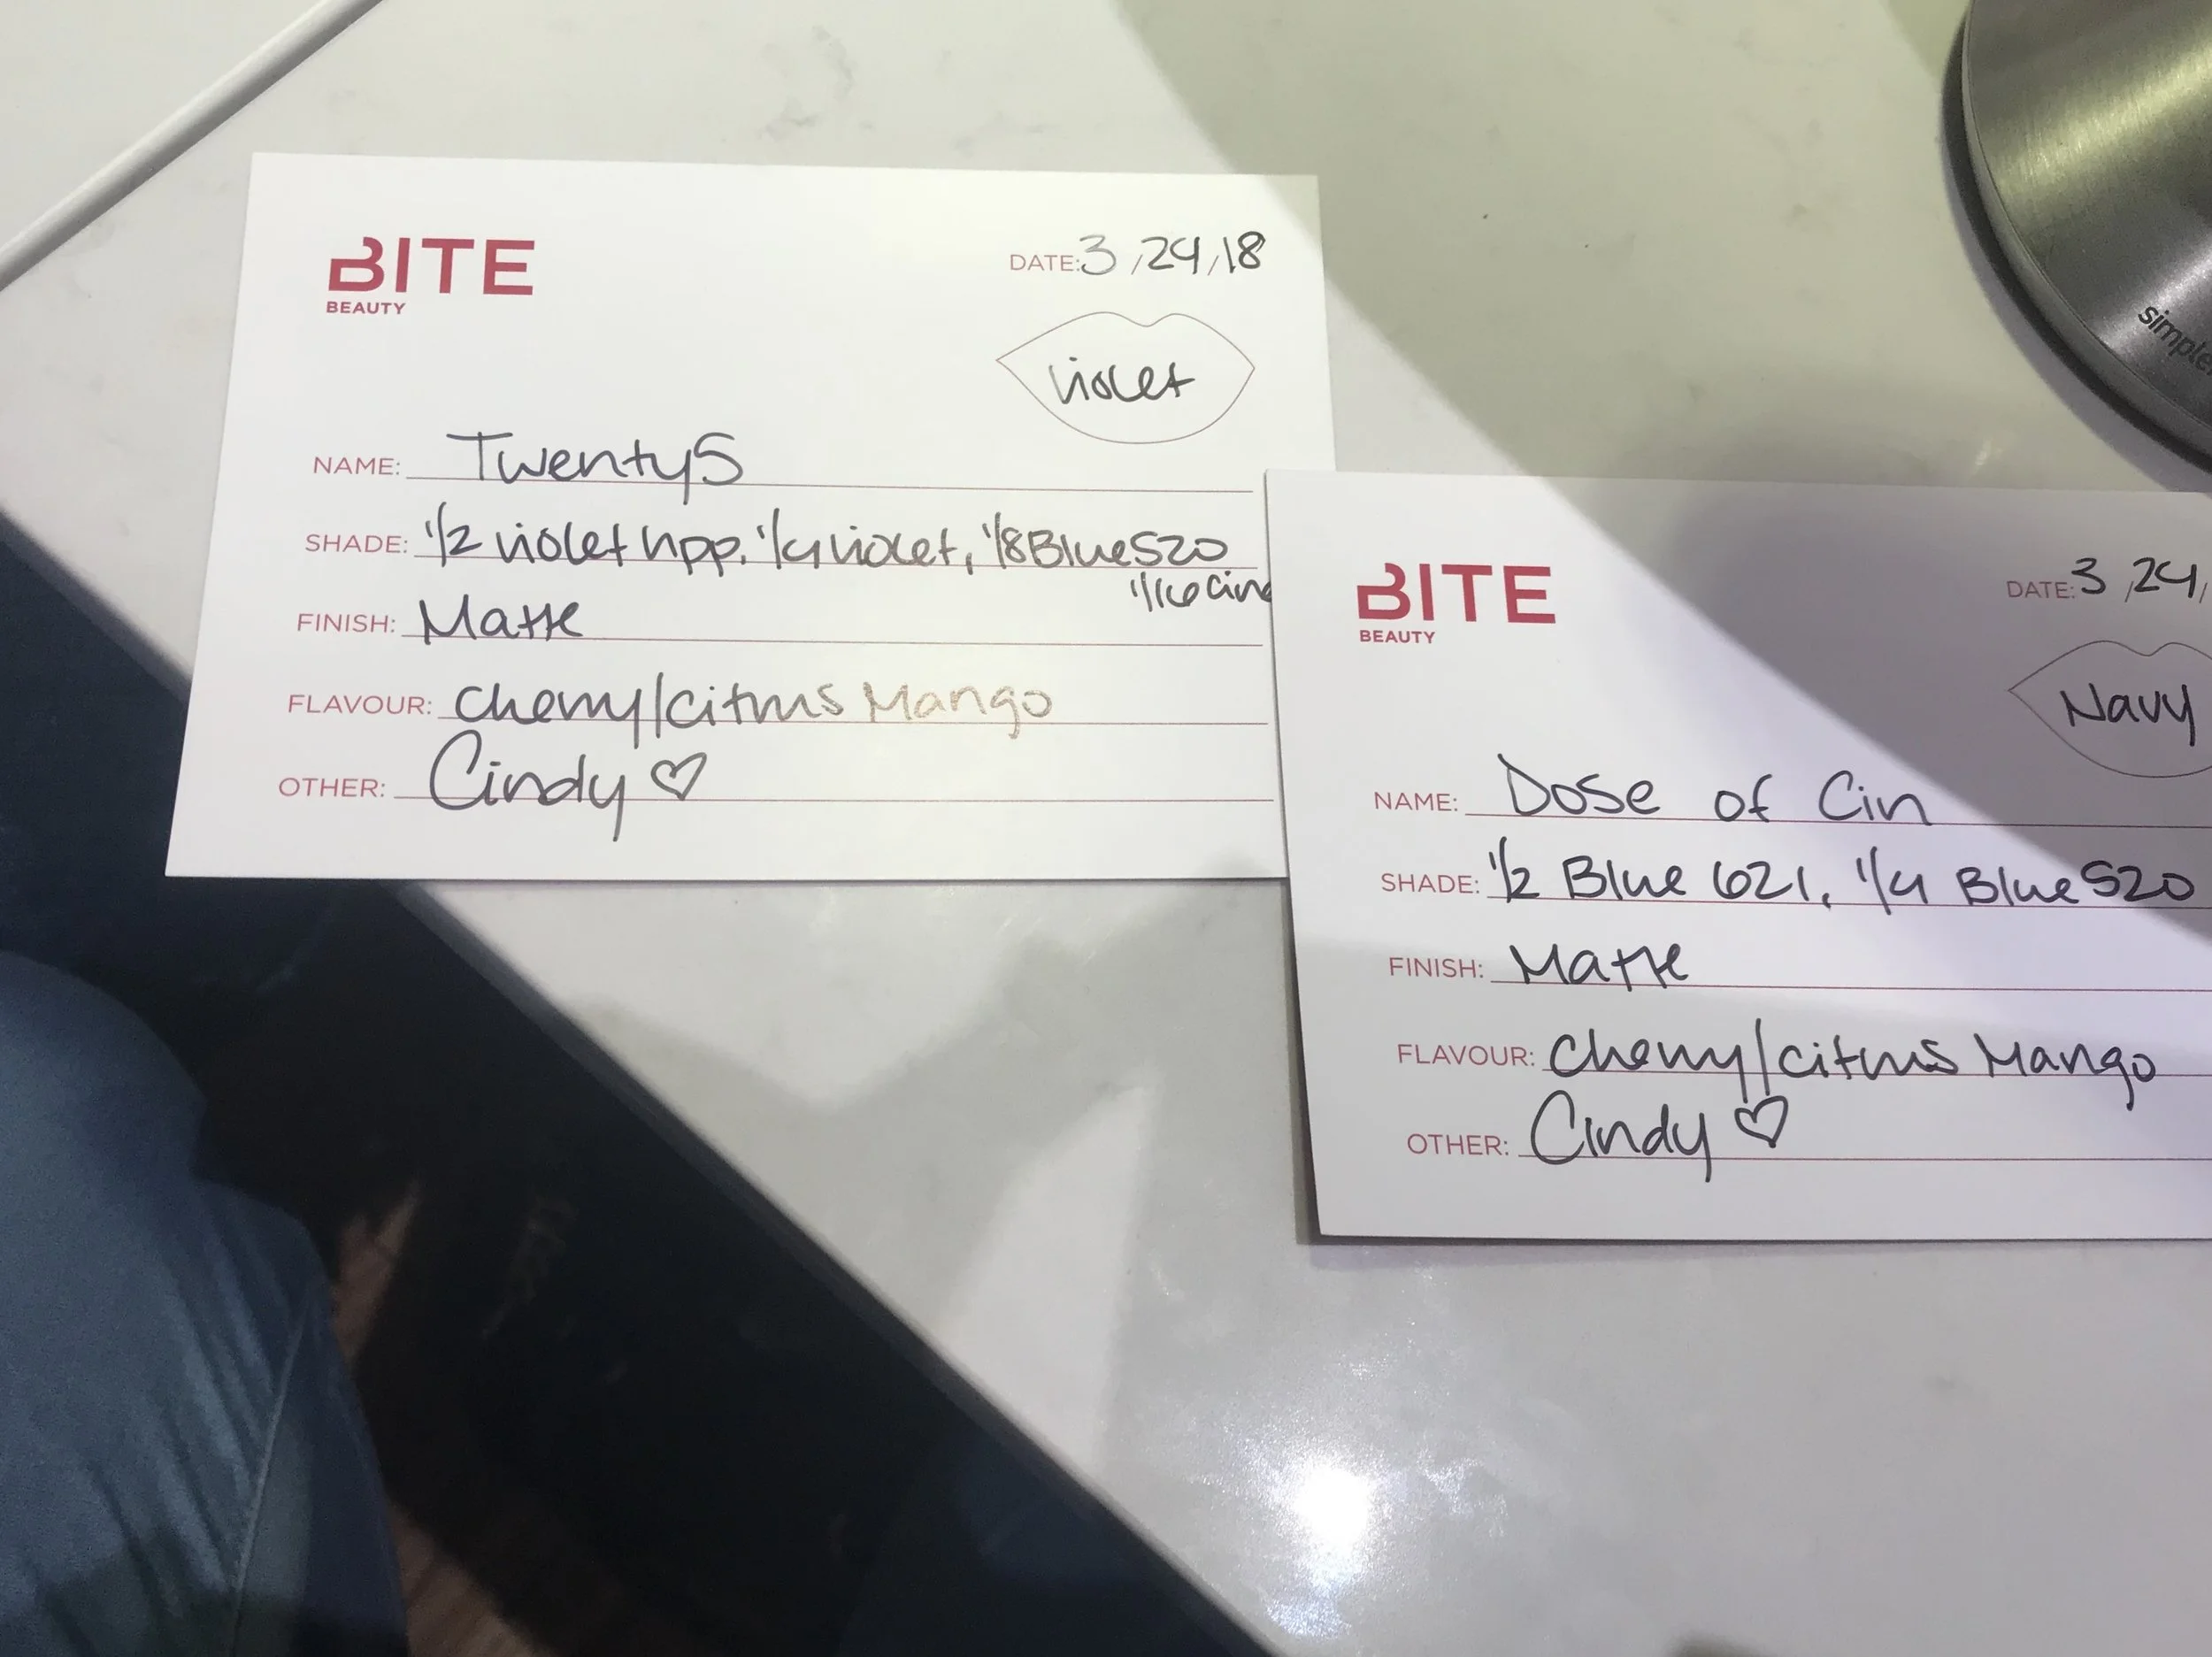 BITE
BEAUTY
DATE: 3/24/18
violet
NAME: Twenty5
SHADE: 1/2 violet hpp. 1/4 violet, 1/8 Blue520
1/16 Cind
FINISH: Matte
FLAVOUR: Cherry/citrus Mango
OTHER: Cindy ♡
BITE
BEAUTY
DATE: 3/24/
Navy
NAME: Dose of Cin
SHADE: 1/2 Blue 621, 1/4 Blue520
FINISH: Matte
FLAVOUR: Cherry/citrus Mango
OTHER: Cindy ♡
simple